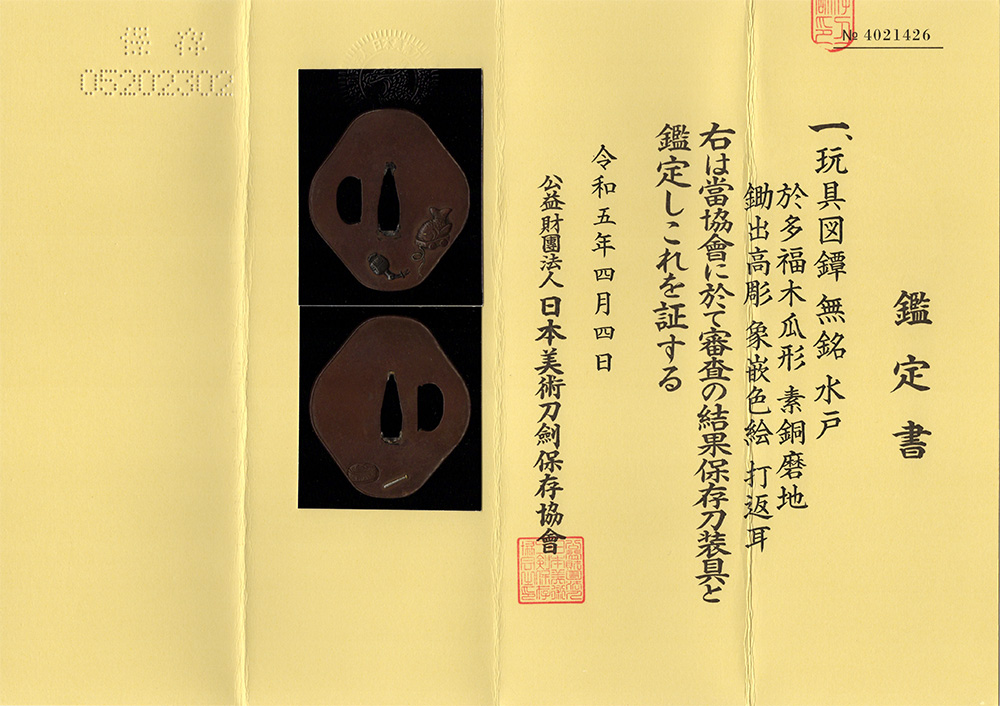 № 4021426
鑑定書
一、玩具図鐔 無銘 水戸
於多福木瓜形 素銅磨地
鋤出高彫 象嵌色絵 打返耳
右は當協會に於て審査の結果保存刀装具と
鑑定しこれを証する
令和五年四月四日
公益財團法人 日本美術刀劍保存協會
保存
05202302